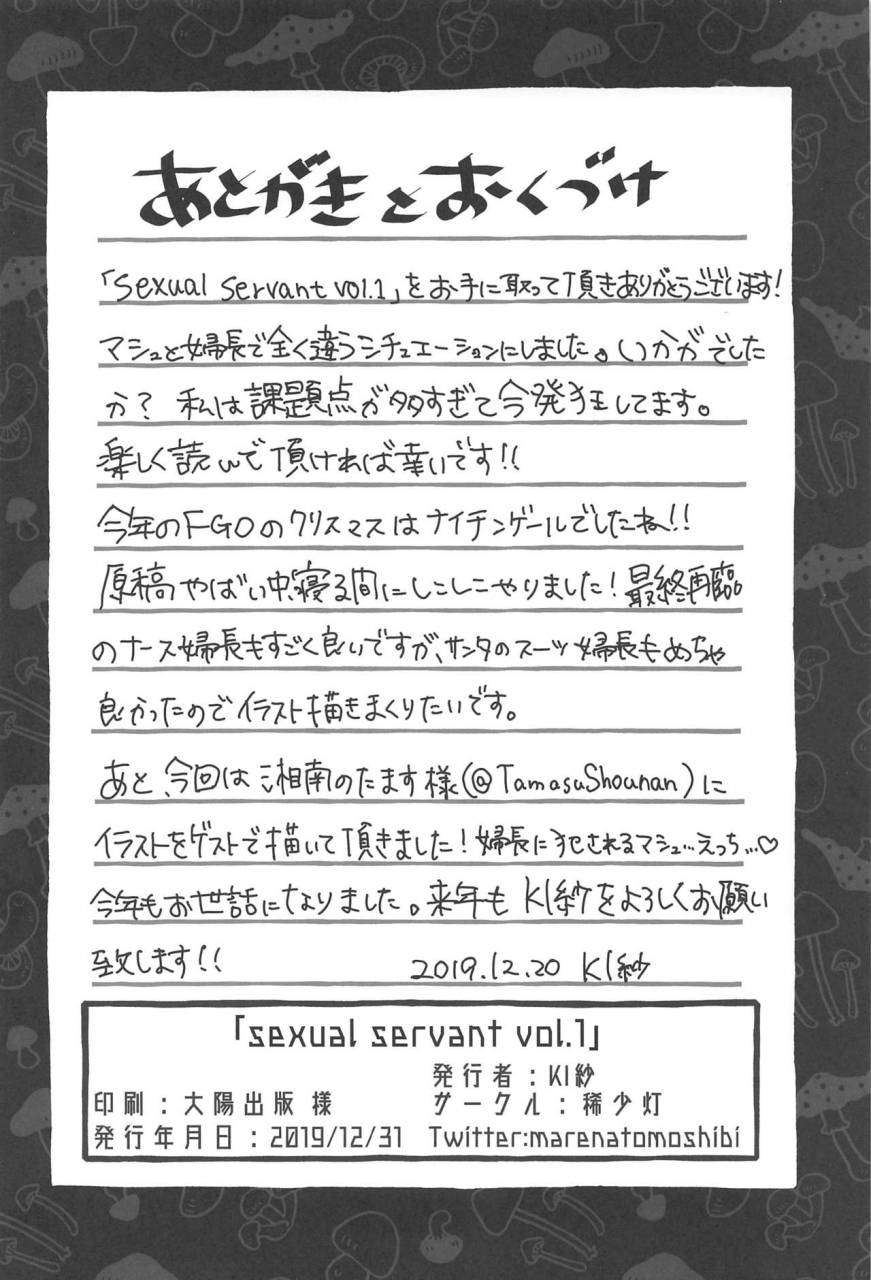 あとがきとおくづけ
「sexual servant vol.1」をお手に取って頂きありがとうございます!
マシュと婦長で全く違うシチュエーションにしました。いかがでした
か? 私は課題点が多すぎて今発狂してます。
楽しく読んで頂ければ幸いです!!
今年のFGOのクリスマスはナイチンゲールでしたね!!
原稿やばい中、寝る間にしこしこやりました!最終再臨
のナース婦長もすごく良いですが、サンタのスーツ婦長もめちゃ
良かったのでイラスト描きまくりたいです。
あと、今回は湘南のたます様(@TamasuShounan)に
イラストをゲストで描いて頂きました!婦長に犯されるマシュ…えっち…♡
今年もお世話になりました。来年も KI紗をよろしくお願い
致します!!
2019.12.20 KI紗
「sexual servant vol.1」
発行者:KI紗
印刷:大陽出版 様 サークル:稀少灯
発行年月日:2019/12/31 Twitter:marenatomoshibi